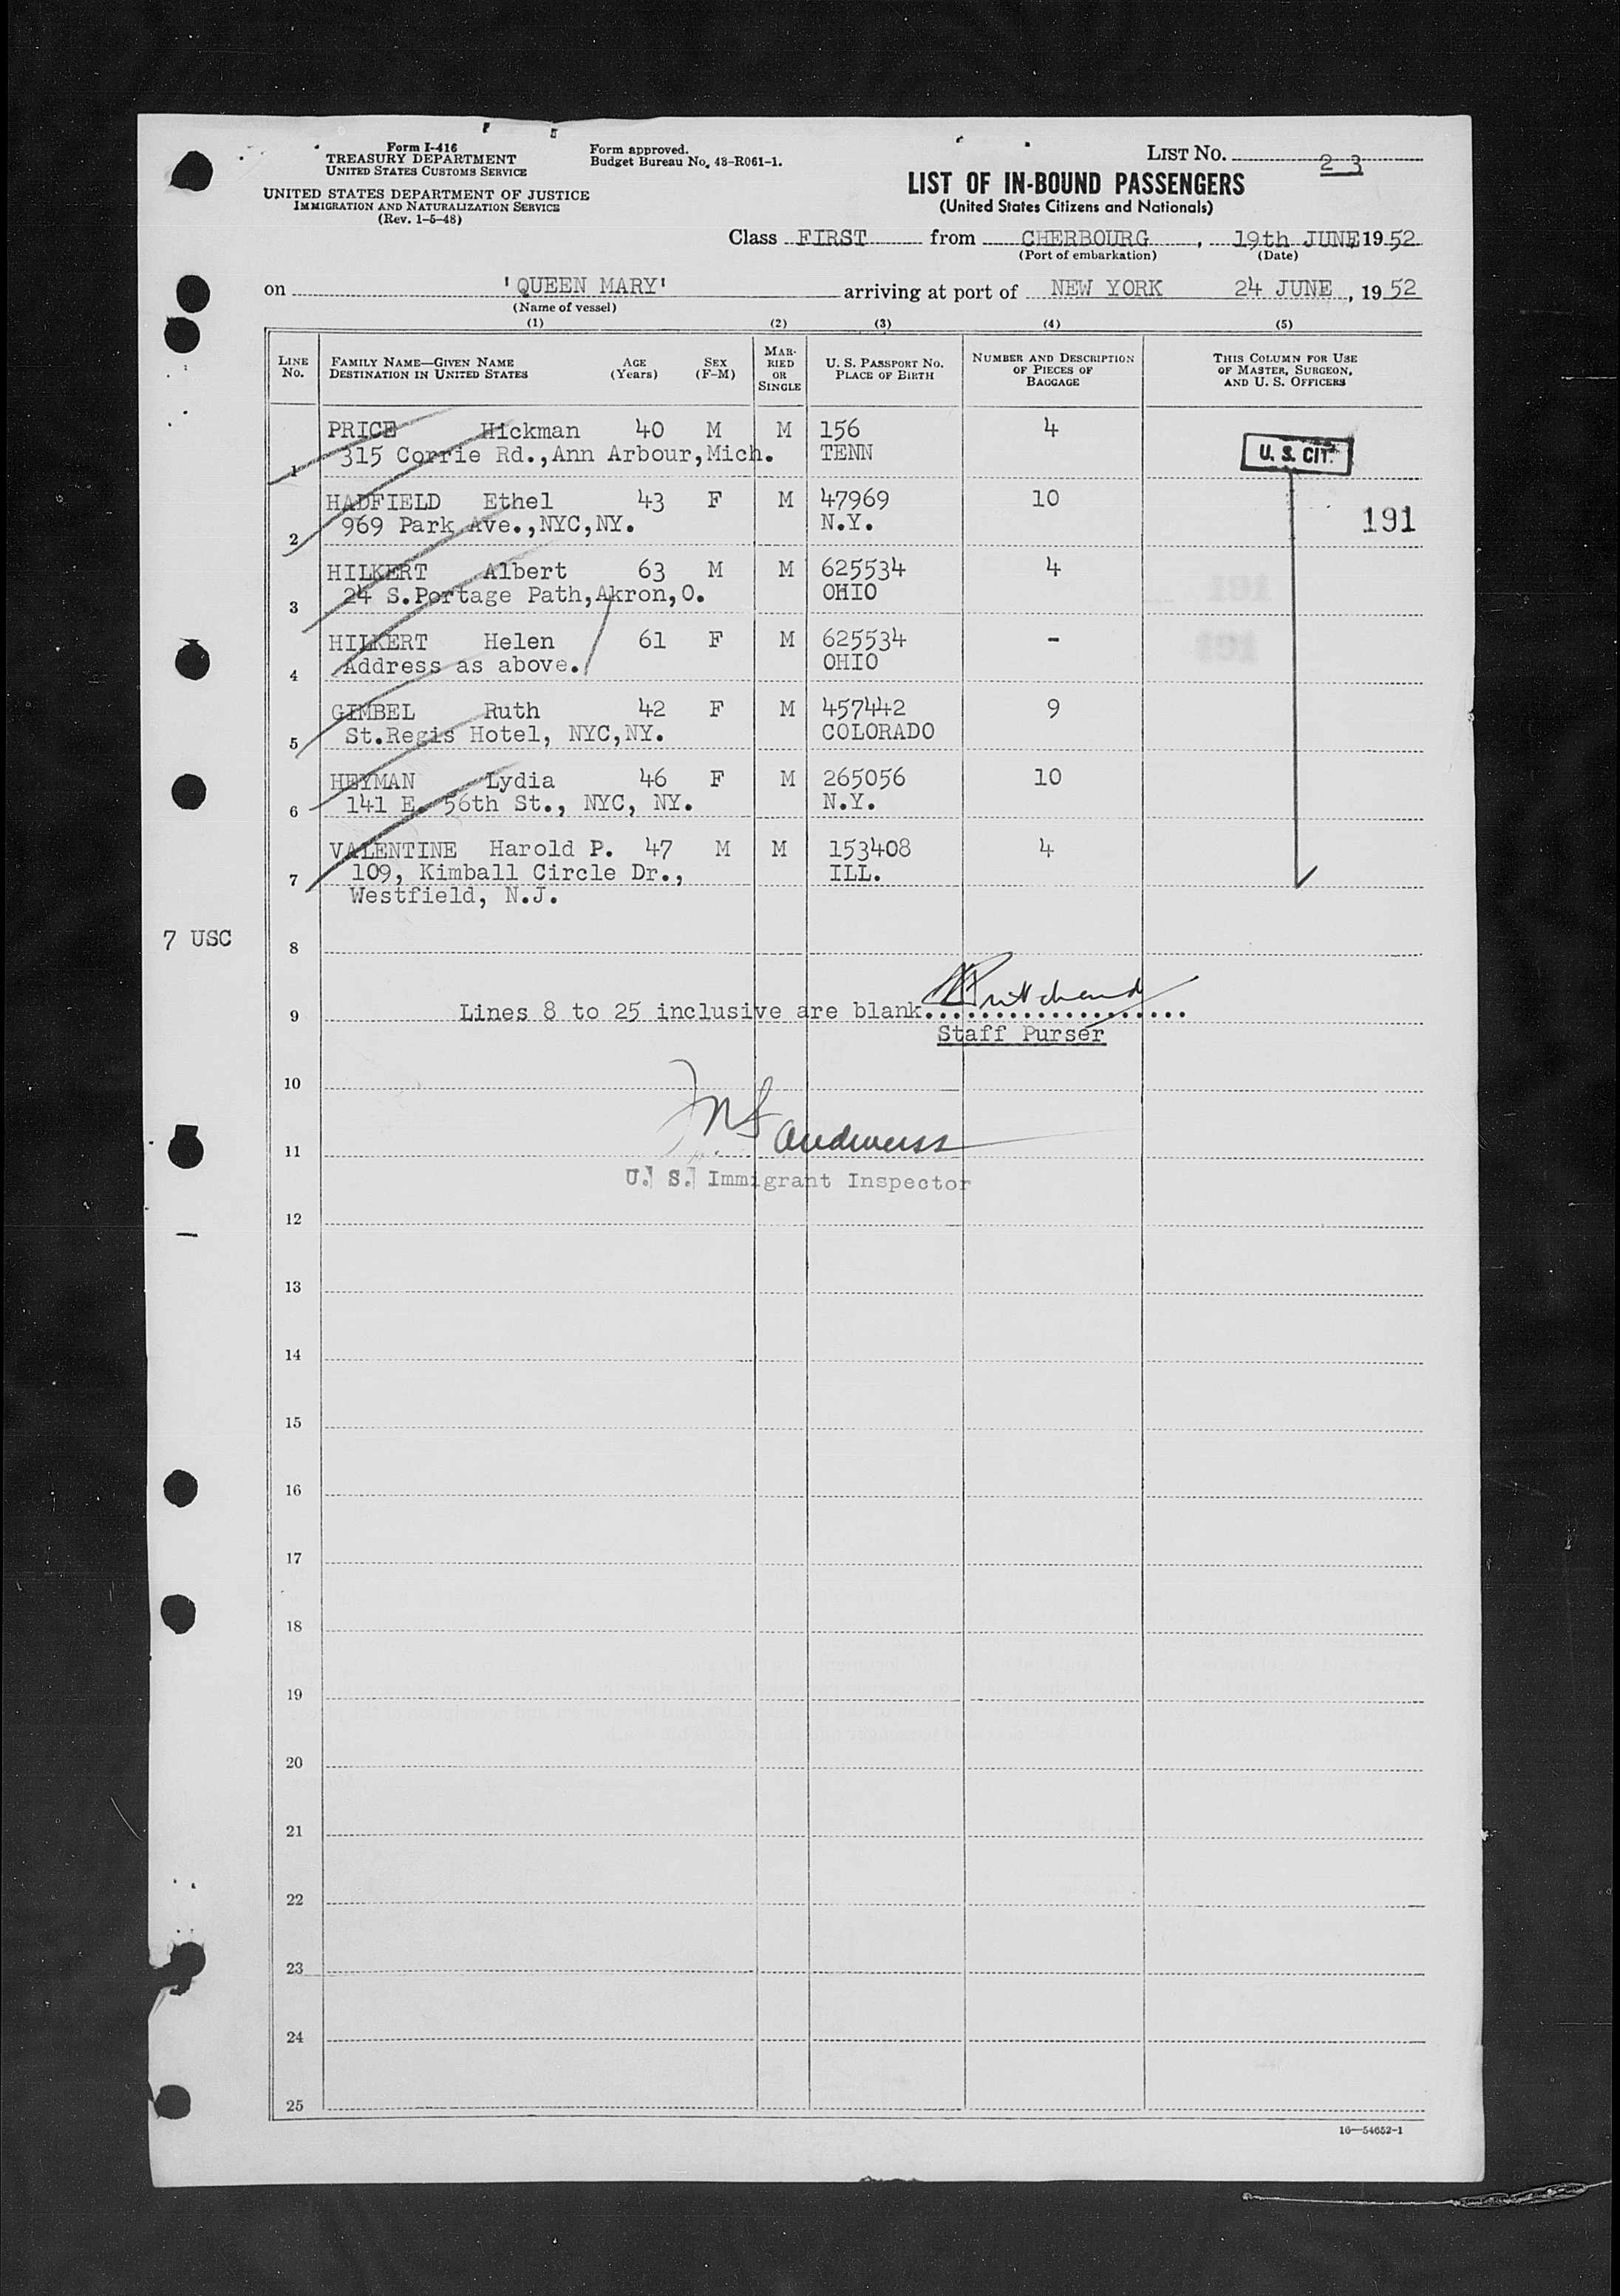 Form I-416
TREASURY DEPARTMENT
UNITED STATES CUSTOMS SERVICE
UNITED STATES DEPARTMENT OF JUSTICE
IMMIGRATION AND NATURALIZATION SERVICE
(Rev. 1-5-48)
Form approved.
Budget Bureau No. 43-R061-1.
LIST NO. 23
LIST OF IN-BOUND PASSENGERS
(United States Citizens and Nationals)
Class FIRST from CHERBOURG, 19th JUNE 1952
(Port of embarkation) (Date)
on 'QUEEN MARY' arriving at port of NEW YORK 24 JUNE, 1952
(Name of vessel)
(1) (2) (3) (4) (5)
LINE NO. FAMILY NAME—GIVEN NAME DESTINATION IN UNITED STATES AGE (Years) SEX (F-M) MARRIED OR SINGLE U. S. PASSPORT NO. PLACE OF BIRTH NUMBER AND DESCRIPTION OF PIECES OF BAGGAGE THIS COLUMN FOR USE OF MASTER, SURGEON, AND U. S. OFFICERS
PRICE Hickman 40 M M 156 4
1 315 Corrie Rd.,Ann Arbour,Mich. TENN
U. S. CIT.
HADFIELD Ethel 43 F M 47969 10
2 969 Park Ave.,NYC,NY. N.Y.
191
HILKERT Albert 63 M M 625534 4
3 24 S.Portage Path,Akron,O. OHIO
191
HILKERT Helen 61 F M 625534 -
4 Address as above. OHIO
191
GIMBEL Ruth 42 F M 457442 9
5 St.Regis Hotel, NYC,NY. COLORADO
HEYMAN Lydia 46 F M 265056 10
6 141 E. 56th St., NYC, NY. N.Y.
VALENTINE Harold P. 47 M M 153408 4
7 109, Kimball Circle Dr., ILL.
Westfield, N.J.
7 USC
8
9 Lines 8 to 25 inclusive are blank. Pritchard
Staff Purser
10
11
U. S. Immigrant Inspector
12
13
14
15
16
17
18
19
20
21
22
23
24
25
16—54652-1